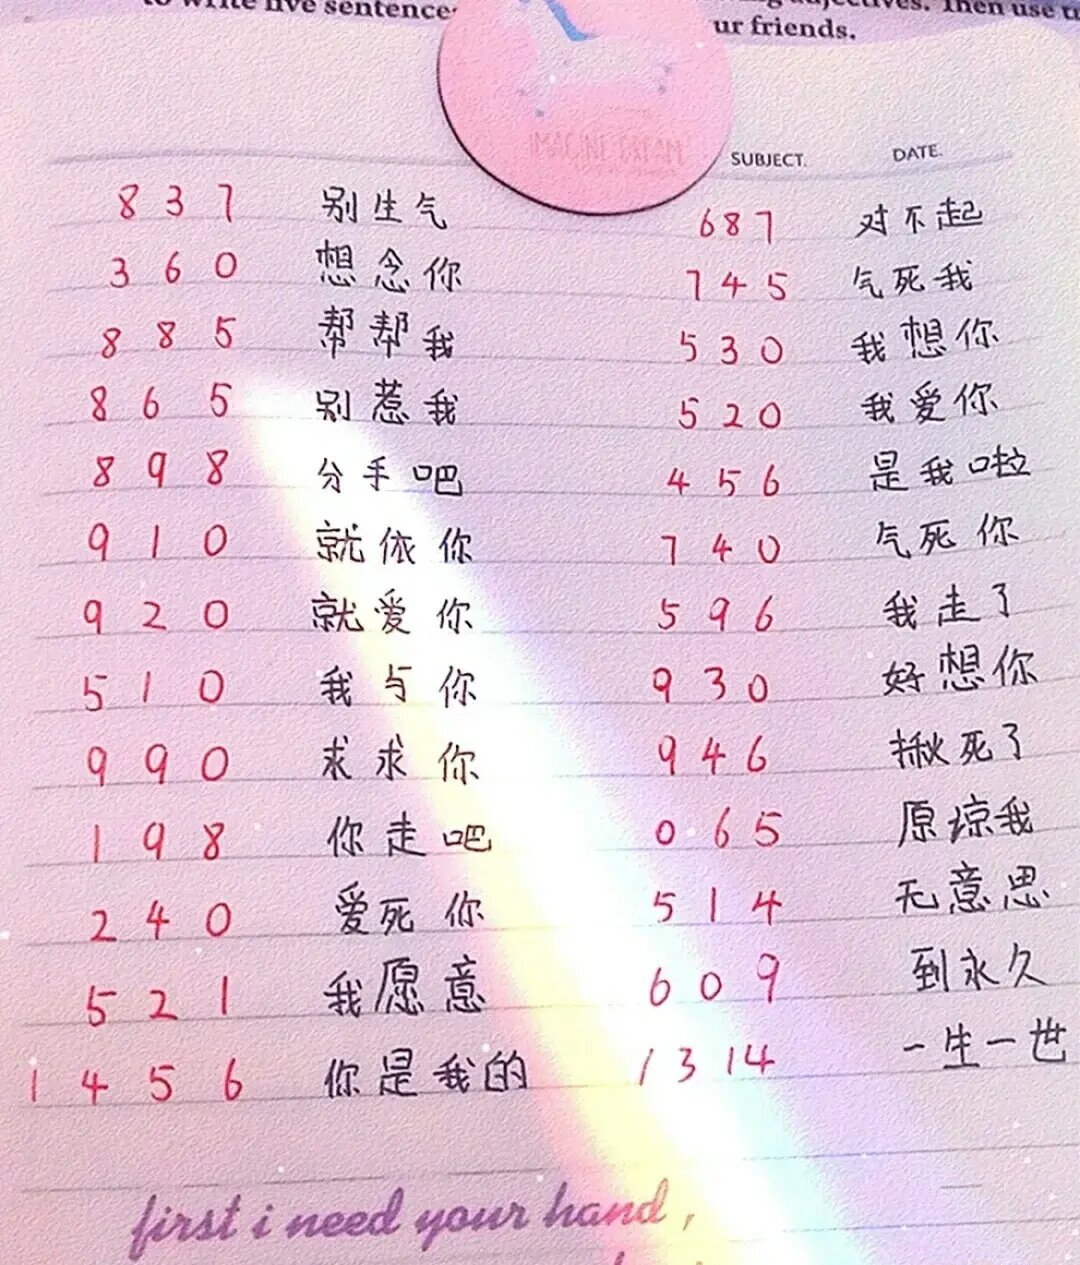 to write five sentence
adjectives. Then use t
ur friends.
IMAGINE DREAM
SUBJECT. DATE.
837 别生气 687 对不起
360 想念你 745 气死我
885 帮帮我 530 我想你
865 别惹我 520 我爱你
898 分手吧 456 是我啦
910 就依你 740 气死你
920 就爱你 596 我走了
510 我与你 930 好想你
990 求求你 946 揪死了
198 你走吧 065 原谅我
240 爱死你 514 无意思
521 我愿意 609 到永久
1456 你是我的 1314 一生一世
first i need your hand ,